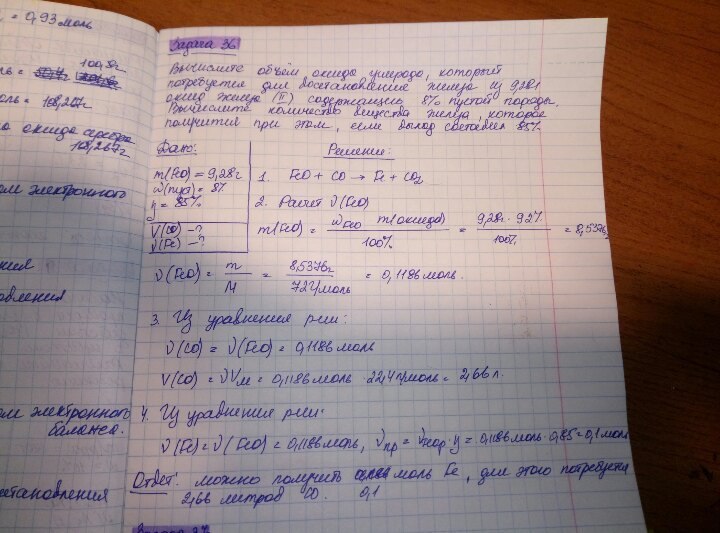 = 0,93 моль
100,8г
108,267г
оксида серебра
108,267г
ом электронного
овления
ом электронного
баланса.
становления
Задача 36
Вычислите объём оксида углерода, который
потребуется для восстановления железа из 9,28г
оксид железа (II) содержащись 8% пустой породы.
Вычислите количество вещества железа, которое
получится при этом, если выход составляет 85%.
Дано:
m(FeO) = 9,28г
ω(пуст) = 8%
η = 85%
V(CO) - ?
ν(Fe) - ?
Решение:
1. FeO + CO → Fe + CO2
2. Расчёт ν(FeO)
m(FeO) = ωFeO m(оксида) / 100% = 9,28г · 92% / 100% = 8,5376г
ν(FeO) = m / M = 8,5376г / 72г/моль = 0,1186 моль.
3. Из уравнения р-ии:
ν(CO) = ν(FeO) = 0,1186 моль
V(CO) = νVм = 0,1186 моль 22,4л/моль = 2,66 л.
4. Из уравнения р-ии:
ν(Fe) = ν(FeO) = 0,1186 моль, νпр = νтеор · η = 0,1186 моль · 0,85 = 0,1 моль
Ответ: можно получить моль Fe, для этого потребуется
2,66 литров CO. 0,1